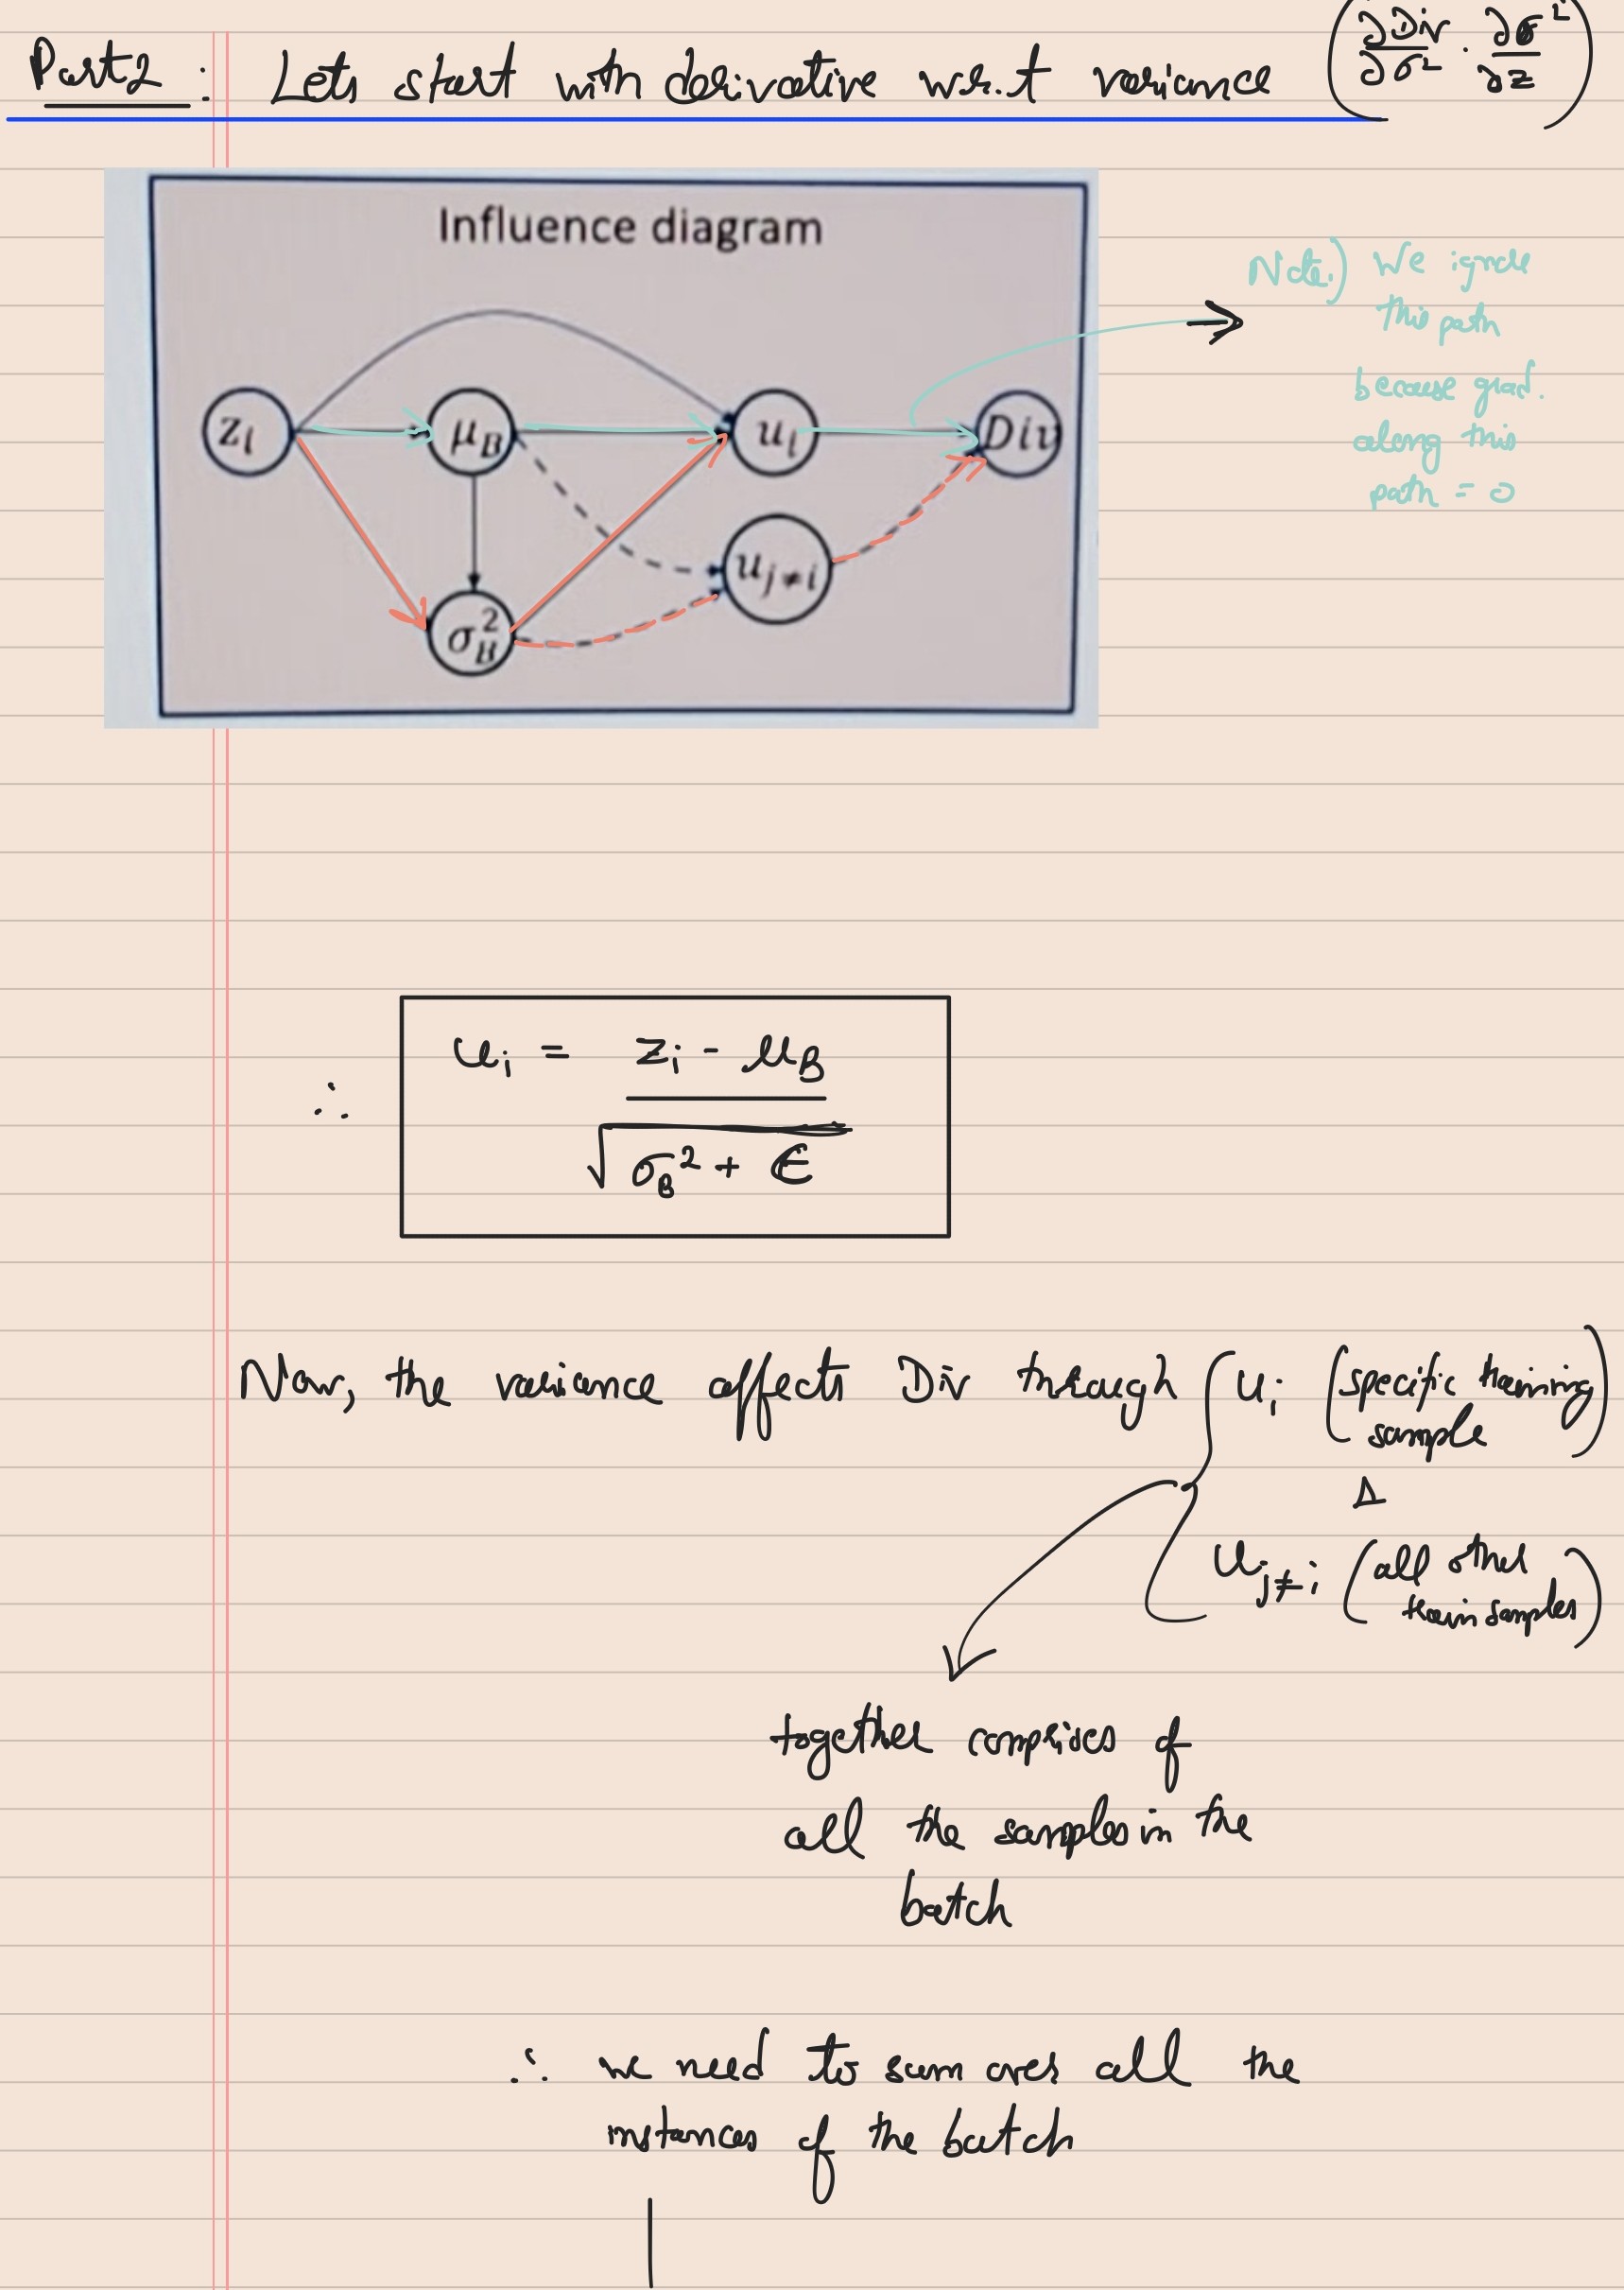 Part 2 : Lets start with derivative w.r.t variance (∂Div/∂σ² · ∂σ²/∂z)
Influence diagram
Note:) We ignore
this path
because grad.
along this
path = 0
z_i μ_B u_i Div
u_{j≠i}
σ_B^2
∴ u_i = (z_i - μ_B) / √(σ_B² + ϵ)
Now, the variance affects Div through { u_i (specific training
sample)
&
u_{j≠i} (all other
train samples)
together comprises of
all the samples in the
batch
∴ we need to sum over all the
instances of the batch